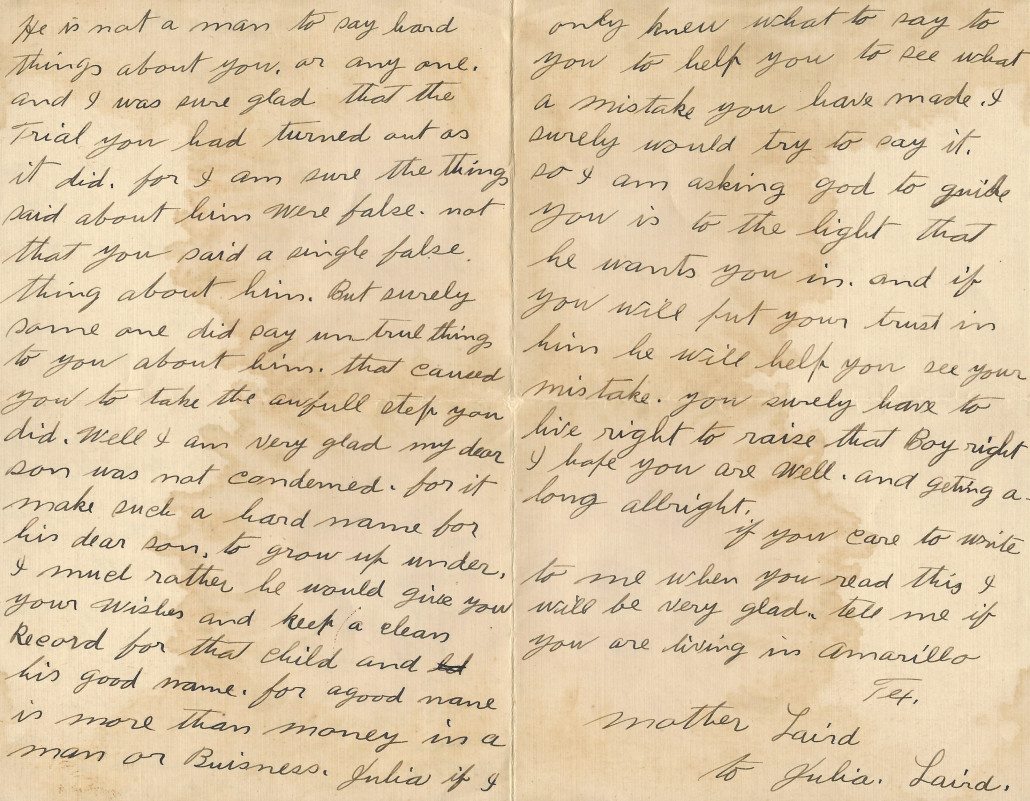 He is not a man to say hard
things about you. or any one.
and I was sure glad that the
Trial you had turned out as
it did. for I am sure the things
said about him were false. not
that you said a single false.
thing about him. But surely
some one did say un-true things
to you about him. that caused
you to take the awfull step you
did. Well I am very glad my dear
son was not condemed. for it
make such a hard name for
his dear son. to grow up under.
I much rather he would give you
your wishes and keep a clean
Record for that child and
his good name. for a good name
is more than money in a
man or Buisness. Julia if I
only knew what to say to
you to help you to see what
a mistake you have made. I
surely would try to say it.
so I am asking god to guide
you is to the light that
he wants you in. and if
you will put your trust in
him he will help you see your
mistake. you surely have to
live right to raise that Boy right
I hope you are well. and geting a-
long allbright.
if you care to write
to me when you read this I
will be very glad. tell me if
you are living in Amarillo
Tex.
Mother Laird
to Julia. Laird.